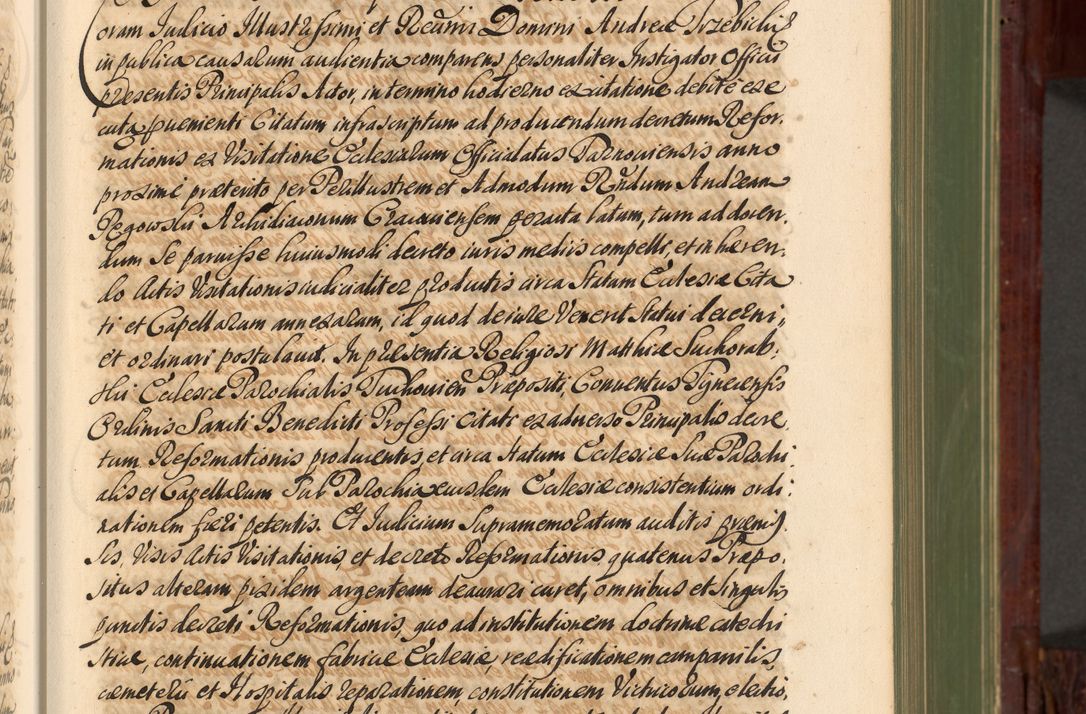 oram Iudicio Illustrissimi et Reũmi Domini Andreæ Trzebicki
in publica causarum audientia comparens personaliter Instigator Officii
præsentis Principalis Actor, in termino hodierno ex citatione debite exe
cuta provenienti Citatum infrascriptum ad producendum decretum Refor,
mationis ex Visitatione Ecclesiarum Officialatus Tarnoviensis anno
proximè præterito per Perillustrem et Admodum Rñdum Andream
Pegowski Archidiaconum Cracoviensem peracta latum, tum ad docen,
dum se paruisse huiusmodi decreto iuris mediis compelli, et in hæren,
do Actis Visitationis iudicialiter productis circa Statum Ecclesiæ Cita
ti et Capellarum annexarum, id quod de iure Venerit Statui decerni,,
et ordinari postulavit. In præsentia Religiosi Matthiæ Suchorab,
ski Ecclesiæ Parochialis Tuchovieñ Præpositi, Conventus Tynecensis
Ordinis Sancti Benedicti Professi Citati ex adverso Principalis decre,
tum Reformationis producentis, et circa statum Ecclesiæ Suæ Parochi,
alis et Capellarum Sub Parochia eiusdem Ecclesiæ consistentium ordi,
nationem fieri petentis. Et Iudicium Supramemoratum auditis præmis
sis, Visis Actis Visitationis, et decreto Reformationis, quatenus Præpo,
situs alteram pixidem argenteam deaurari curet, omnibus et singulis
punctis decreti Reformationis, quo ad institutionem doctrinæ catechi
sticæ, continuationem fabricæ Ecclesiæ, reædificationem campanilis,
cæmeterii et Hospitalis reparationem, constitutionem Victricorum, electio,